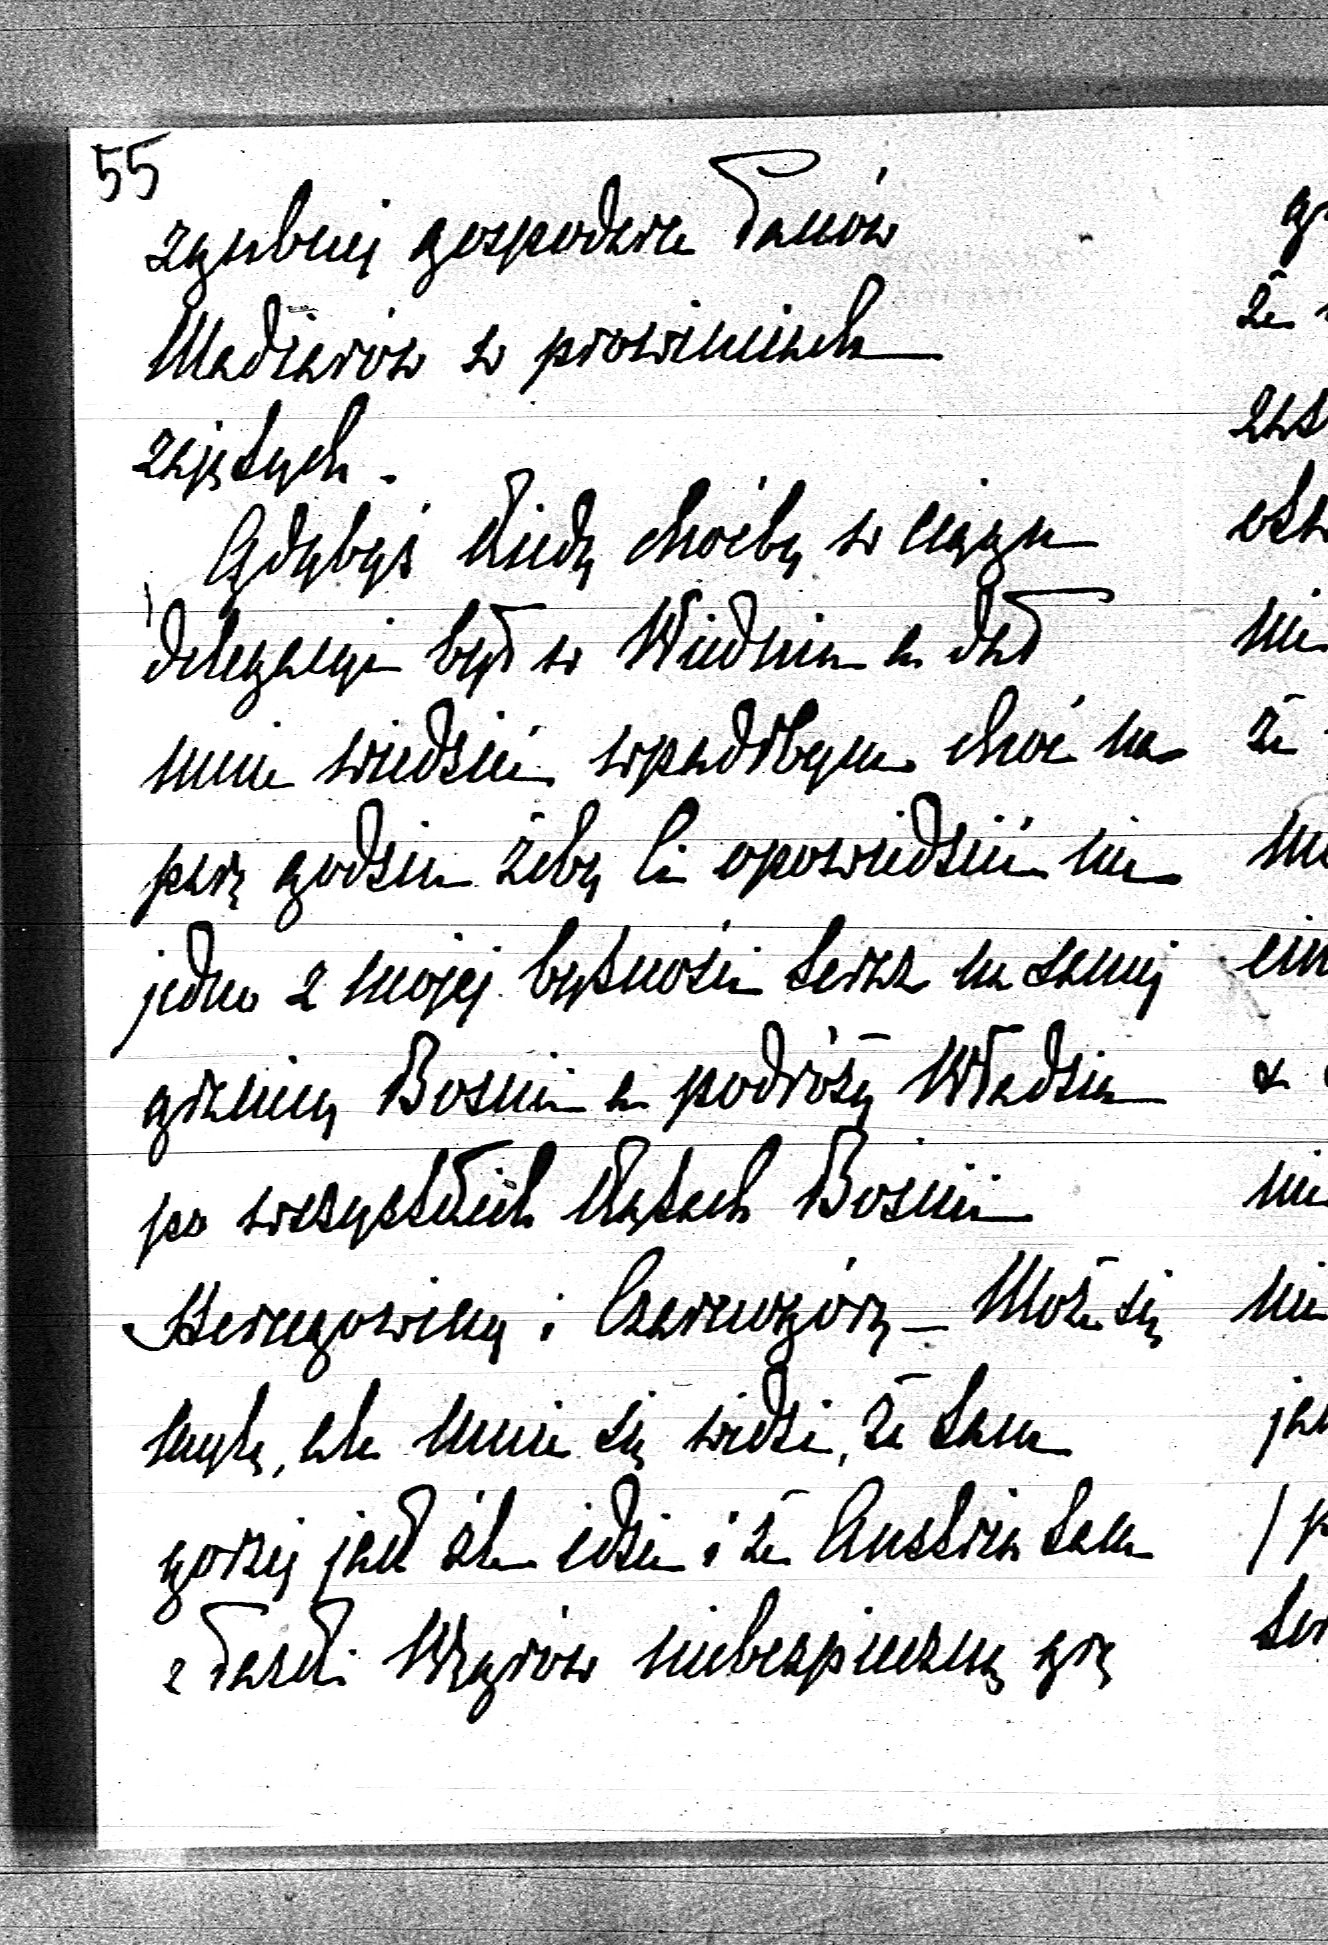 55
zgubnej gospodarce Panów
Madiarów w prowincjach
zajętych.
Gdybyś kiedy choćby w ciągu
delegacyi był w Wiedniu a dał
mnie wiedzieć wpadłbym choć na
parę godzin żeby Ci opowiedzieć nie
jedno z mojej bytności teraz na samej
granicy Bosnii a podróży Władzia
po wszystkich kątach Bosnii
Hercegowiny i Czarnogóry – Może się
mylę, ale mnie się widzi, że tam
gorzej jak źle idzie i że Austria tam
z łaski Węgrów niebezpieczną grę